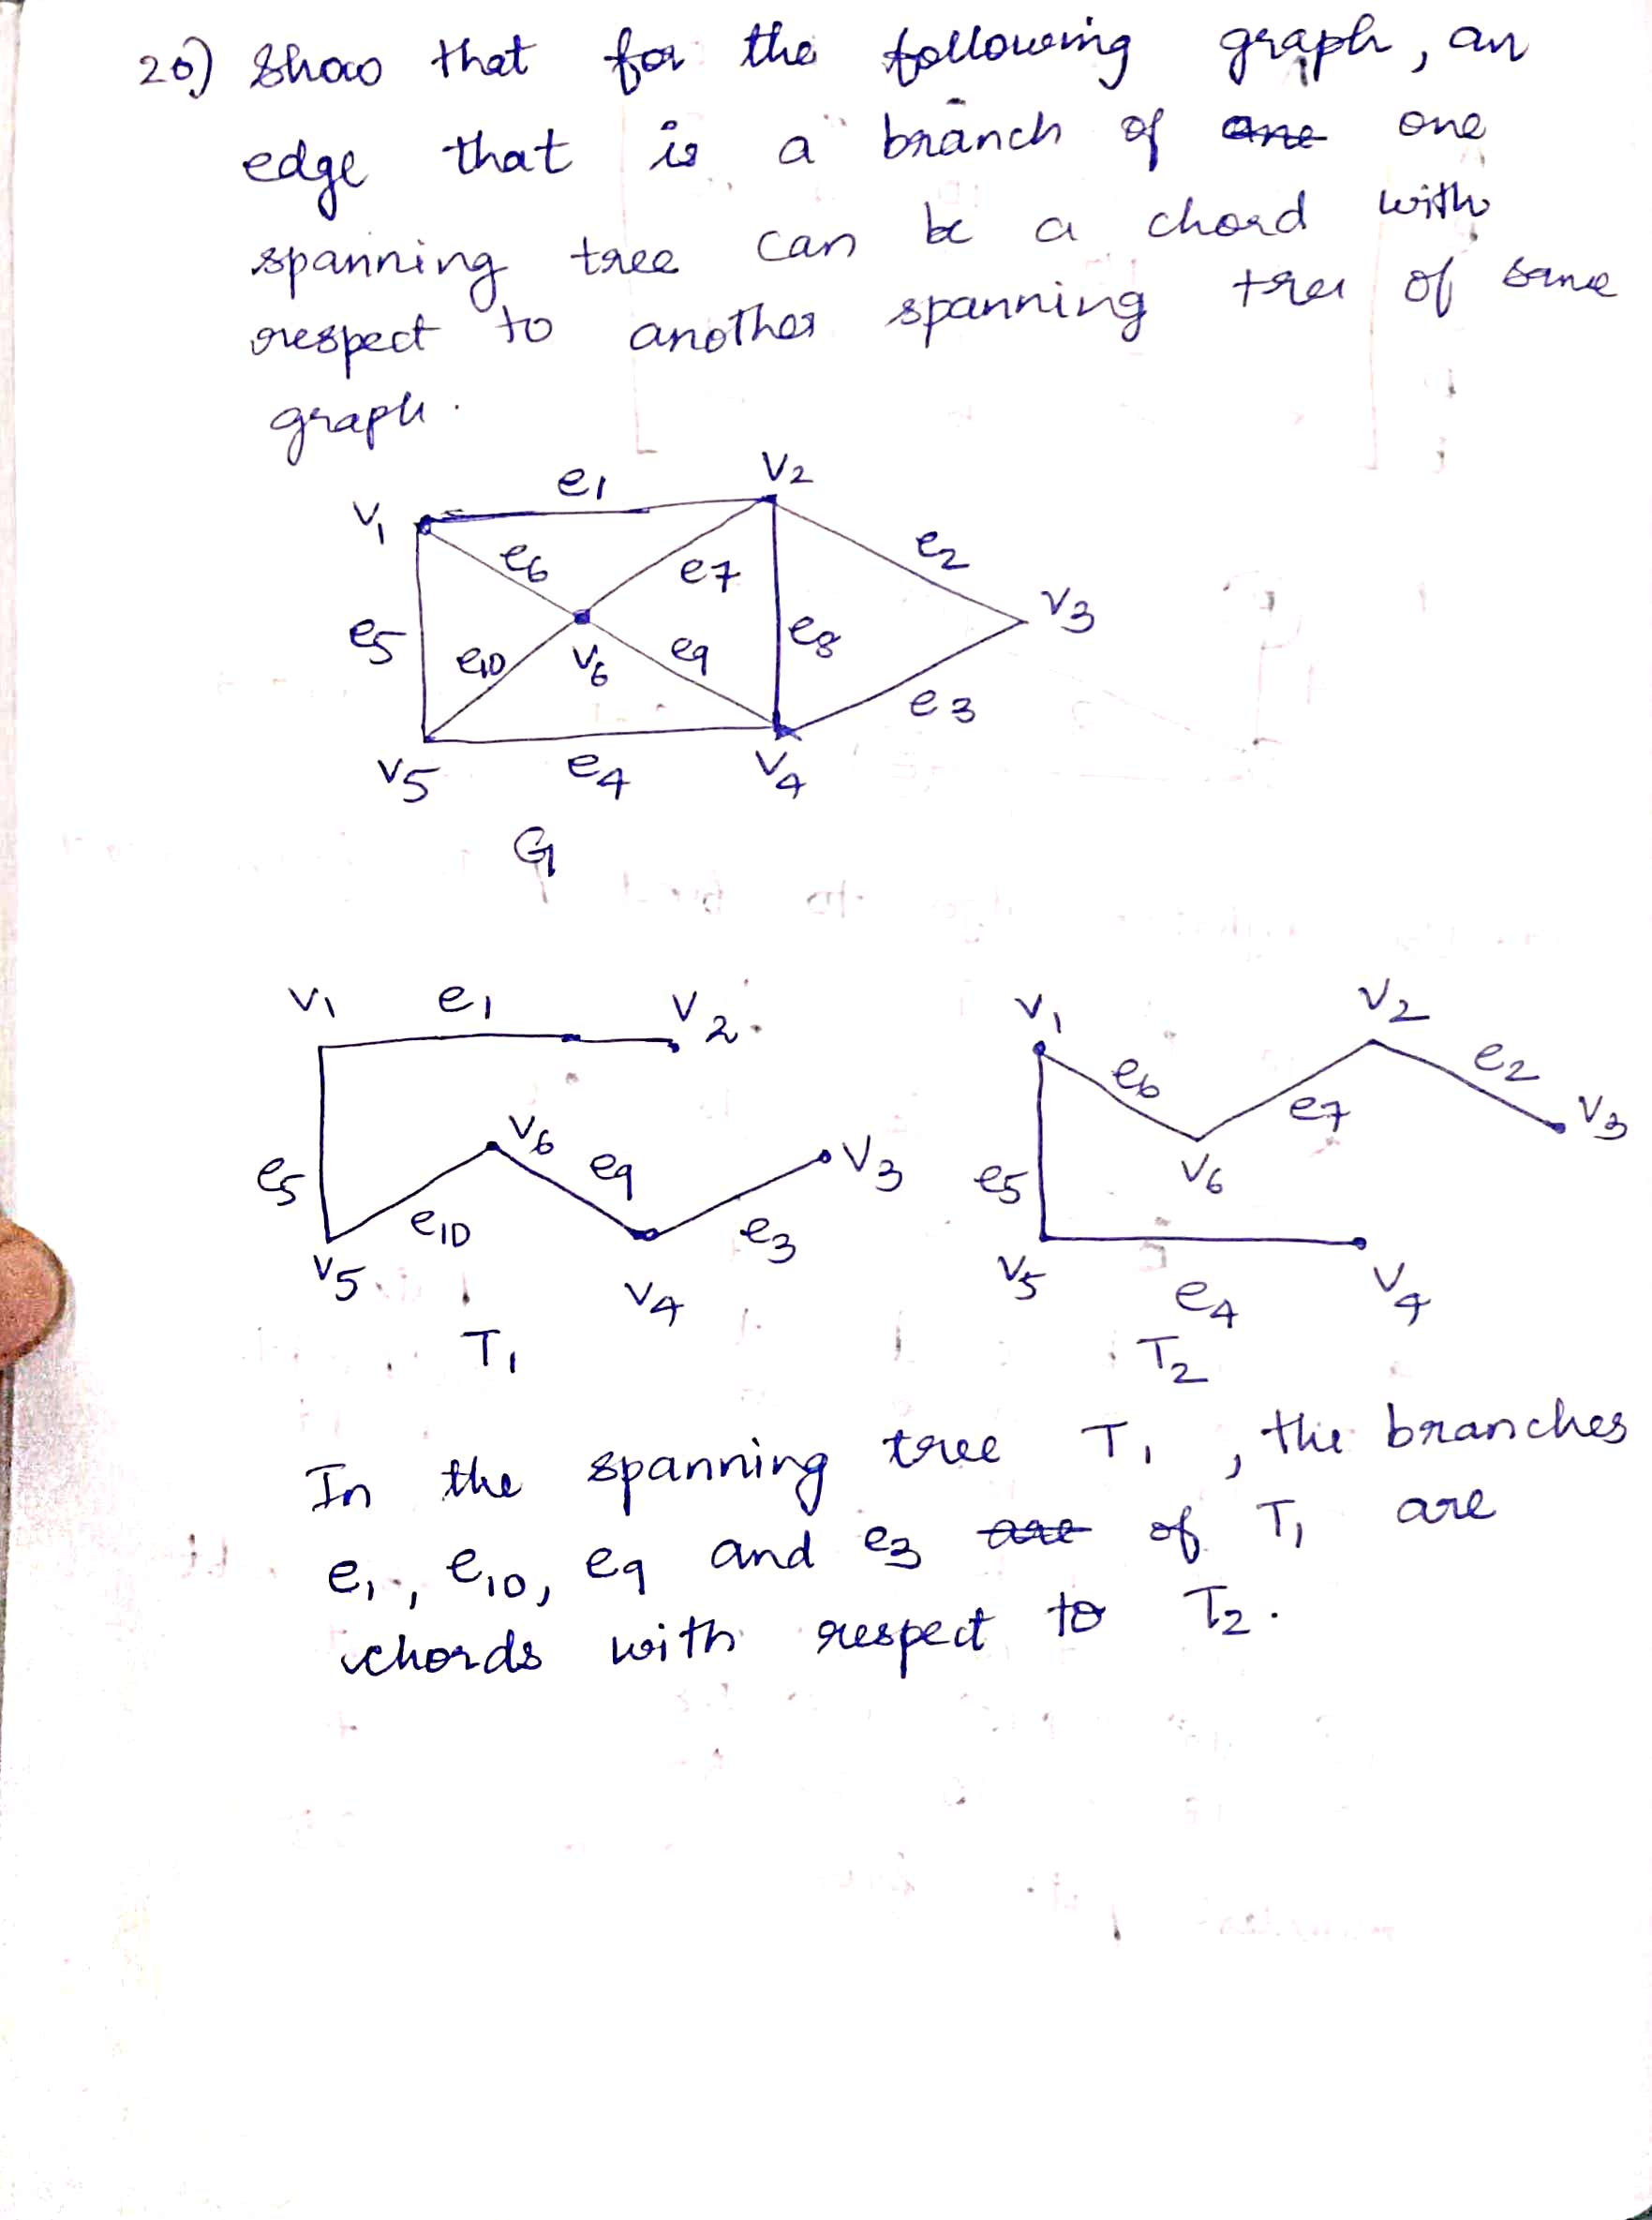 26) Show that for the following graph, an
edge that is a branch of one one
spanning tree can be a chord with
respect to another spanning tree of same
graph.
e1 V2
V1
e6 e7 e2
V3
e5 e10 V6 e9 e8
e3
V5 e4 V4
G
V1 e1 V2
V6 e9 V3
e5 e10 e3
V5 V4
T1
V1 V2
e6 e7 e2 V3
e5 V6
V5 e4 V4
T2
In the spanning tree T1, the branches
e1, e10, e9 and e3 are of T1 are
chords with respect to T2.